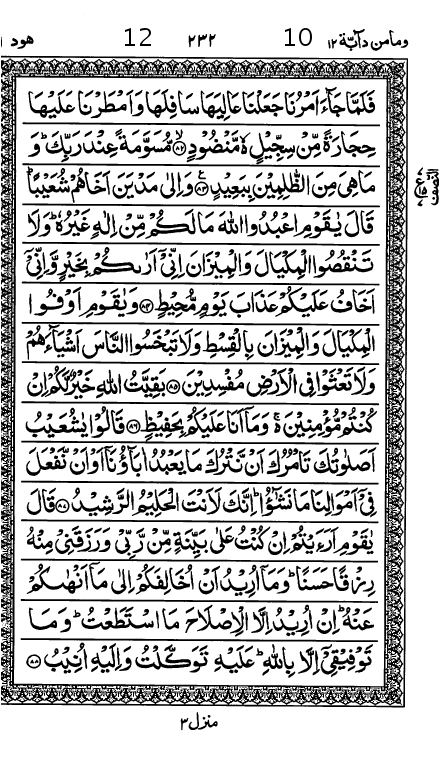 ومامن دآبّة ١٢ 10 ٢٣٢ 12 هود ١
فَلَمَّا جَآءَ اَمْرُنَا جَعَلْنَا عَالِيَهَا سَافِلَهَا وَاَمْطَرْنَا عَلَيْهَا
حِجَارَةً مِّنْ سِجِّيْلٍ ەۙ مَّنْضُوْدٍ ۙ﴿۸۲﴾ مُّسَوَّمَةً عِنْدَ رَبِّكَ ؕ وَ
مَا هِىَ مِنَ الظّٰلِمِيْنَ بِبَعِيْدٍ ﴿۸۳﴾ وَاِلٰى مَدْيَنَ اَخَاهُمْ شُعَيْبًا ؕ
قَالَ يٰقَوْمِ اعْبُدُوا اللّٰهَ مَا لَكُمْ مِّنْ اِلٰهٍ غَيْرُهٗ ؕ وَلَا
تَنْقُصُوا الْمِكْيَالَ وَالْمِيْزَانَ اِنِّىْۤ اَرٰىكُمْ بِخَيْرٍ وَّاِنِّىْۤ
اَخَافُ عَلَيْكُمْ عَذَابَ يَوْمٍ مُّحِيْطٍ ﴿۸۴﴾ وَيٰقَوْمِ اَوْفُوا
الْمِكْيَالَ وَالْمِيْزَانَ بِالْقِسْطِ وَلَا تَبْخَسُوا النَّاسَ اَشْيَآءَهُمْ
وَلَا تَعْثَوْا فِى الْاَرْضِ مُفْسِدِيْنَ ﴿۸۵﴾ بَقِيَّتُ اللّٰهِ خَيْرٌ لَّكُمْ اِنْ
كُنْتُمْ مُّؤْمِنِيْنَ ەۚ وَمَاۤ اَنَا عَلَيْكُمْ بِحَفِيْظٍ ﴿۸۶﴾ قَالُوْا يٰشُعَيْبُ
اَصَلٰوتُكَ تَاْمُرُكَ اَنْ نَّتْرُكَ مَا يَعْبُدُ اٰبَآؤُنَاۤ اَوْ اَنْ نَّفْعَلَ
فِىْۤ اَمْوَالِنَا مَا نَشٰٓؤُا ؕ اِنَّكَ لَاَنْتَ الْحَلِيْمُ الرَّشِيْدُ ﴿۸۷﴾ قَالَ
يٰقَوْمِ اَرَءَيْتُمْ اِنْ كُنْتُ عَلٰى بَيِّنَةٍ مِّنْ رَّبِّىْ وَرَزَقَنِىْ مِنْهُ
رِزْقًا حَسَنًا ؕ وَمَاۤ اُرِيْدُ اَنْ اُخَالِفَكُمْ اِلٰى مَاۤ اَنْهٰىكُمْ
عَنْهُ ؕ اِنْ اُرِيْدُ اِلَّا الْاِصْلَاحَ مَا اسْتَطَعْتُ ؕ وَمَا
تَوْفِيْقِىْۤ اِلَّا بِاللّٰهِ ؕ عَلَيْهِ تَوَكَّلْتُ وَاِلَيْهِ اُنِيْبُ ﴿۸۸﴾
منزل ٣